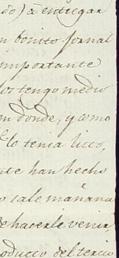 do) à entregar
n bonito jornal
importante
los tengo medio
n donde, y como
lo tenia
ute han hecho
o sale mañana
e hacerle venir
oducto del tercio